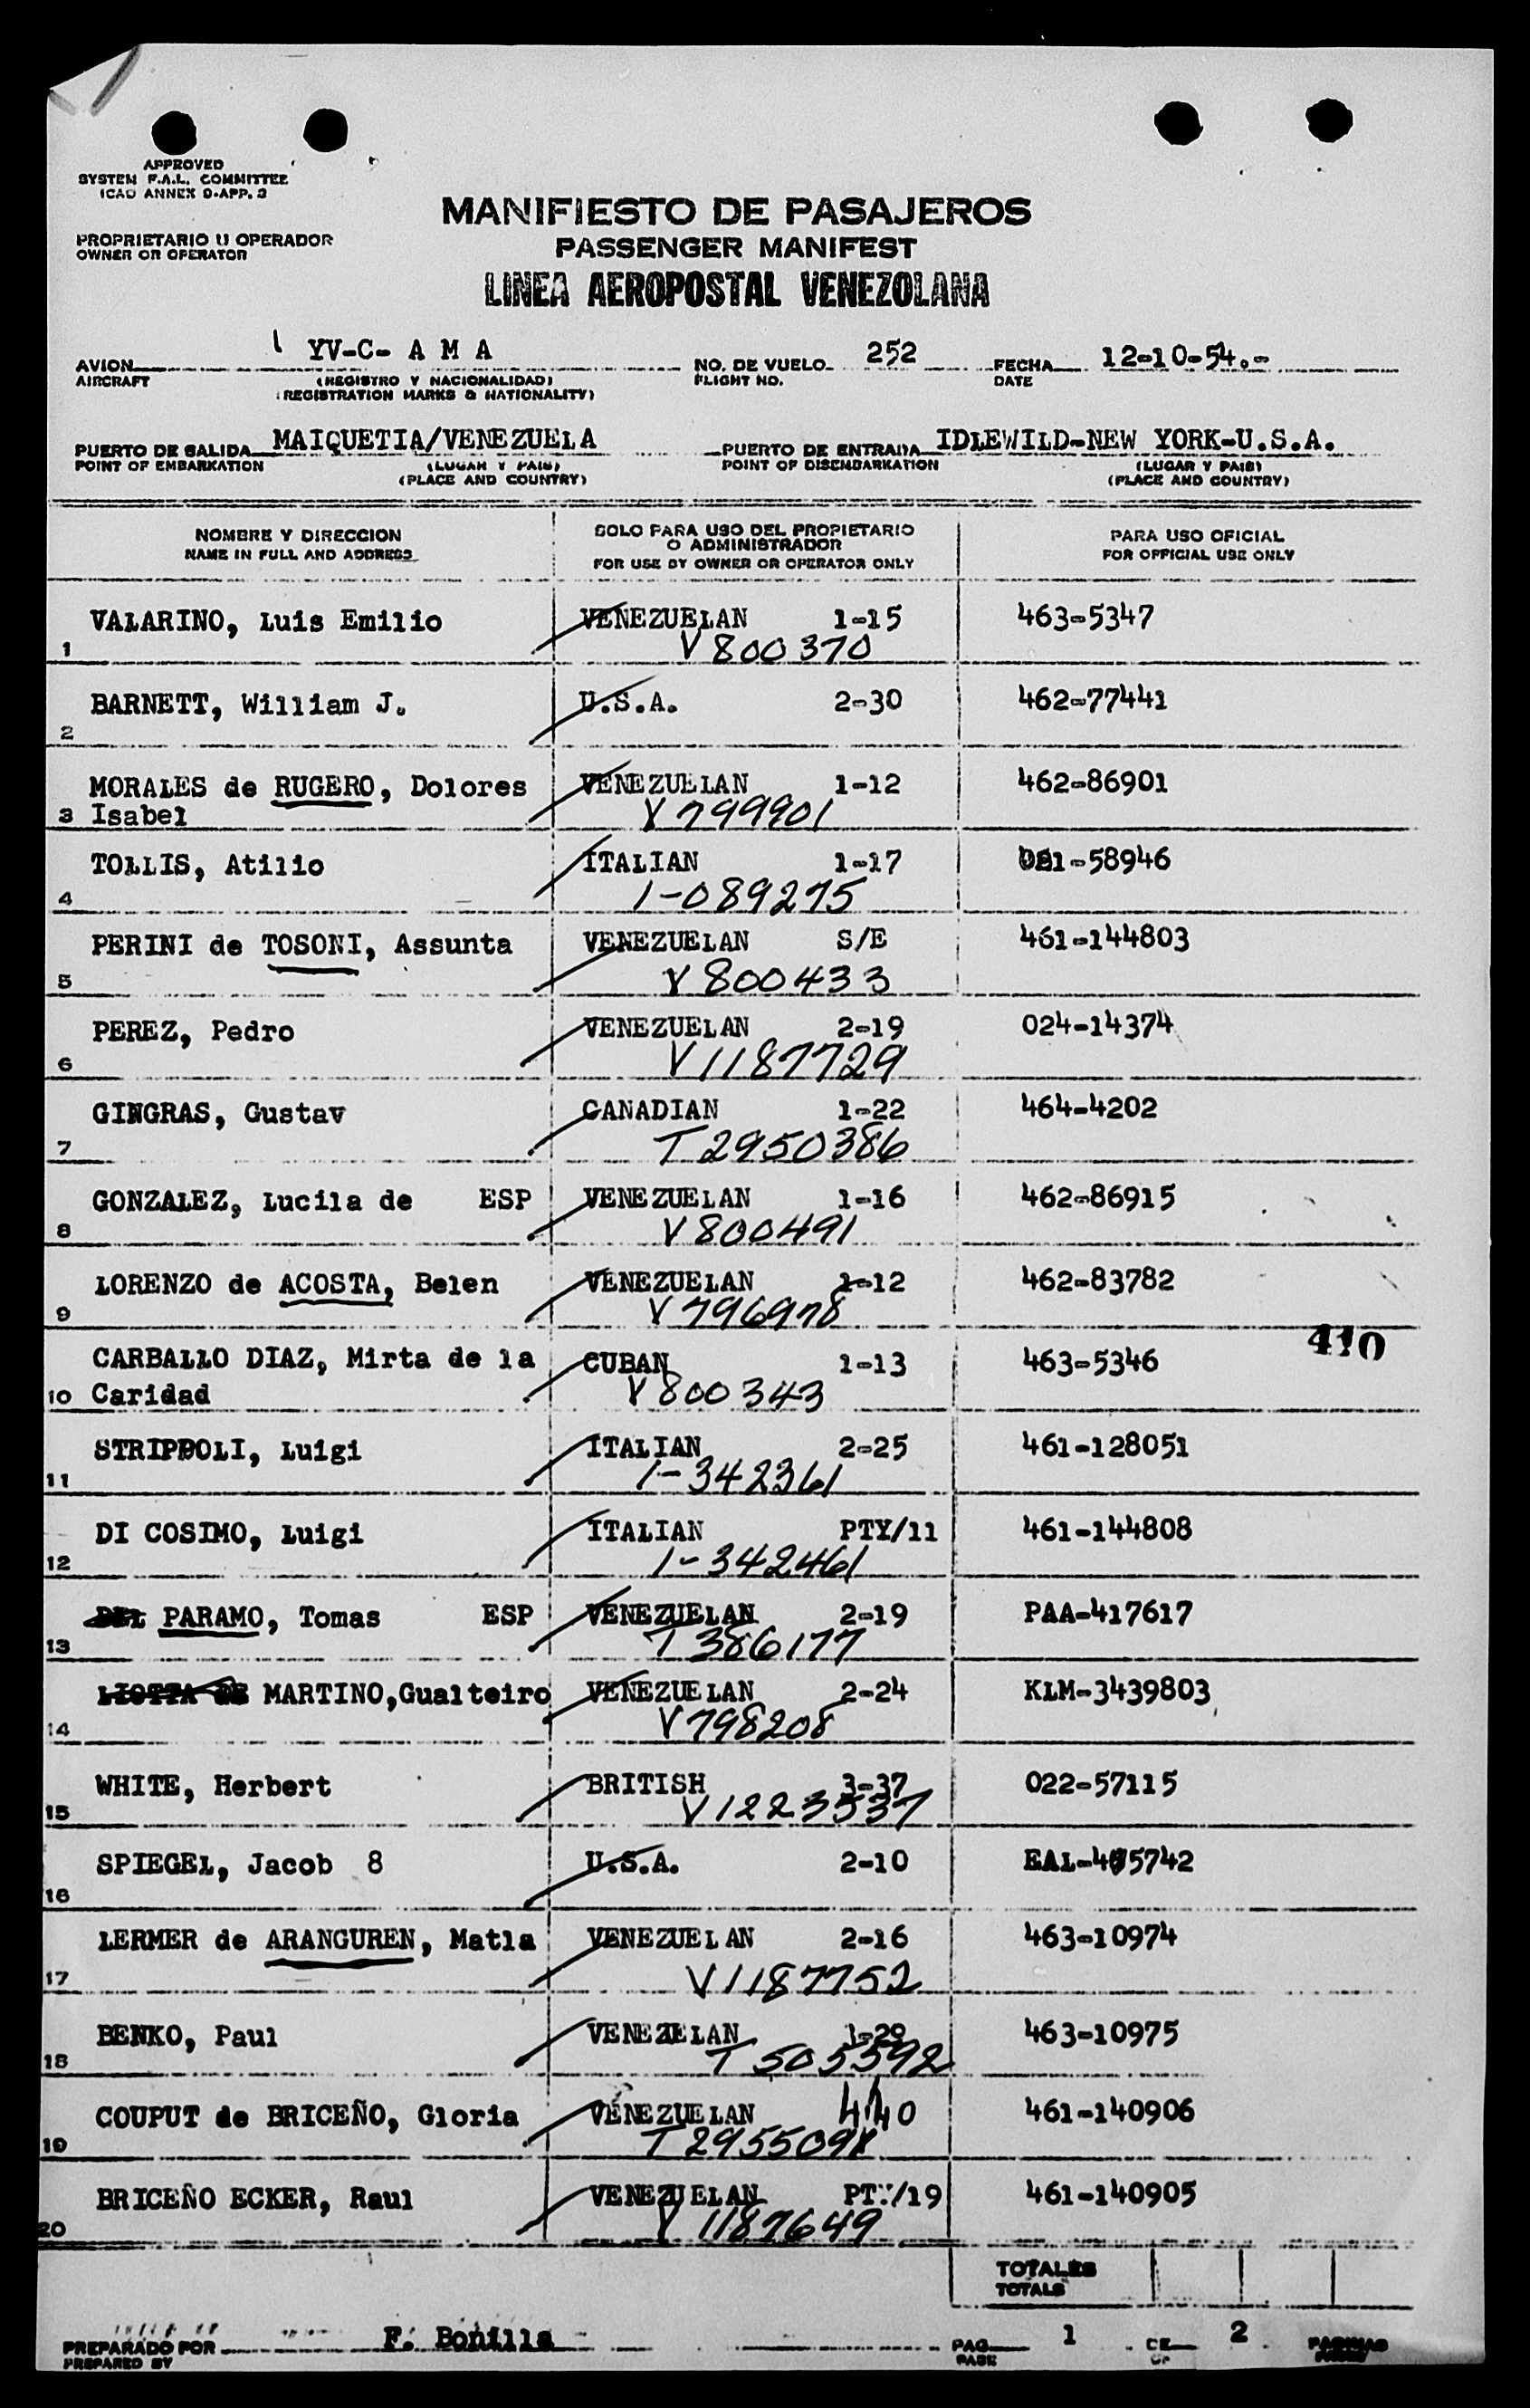 APPROVED
SYSTEM F.A.L. COMMITTEE
ICAO ANNEX 9-APP. 3
MANIFIESTO DE PASAJEROS
PROPRIETARIO U OPERADOR
OWNER OR OPERATOR
PASSENGER MANIFEST
LINEA AEROPOSTAL VENEZOLANA
AVION YV-C- A M A NO. DE VUELO 252 FECHA 12-10-54.-
AIRCRAFT (REGISTRO Y NACIONALIDAD) FLIGHT NO. DATE
(REGISTRATION MARKS & NATIONALITY)
PUERTO DE SALIDA MAIQUETIA/VENEZUELA PUERTO DE ENTRADA IDLEWILD-NEW YORK-U.S.A.
POINT OF EMBARKATION (LUGAR Y PAIS) POINT OF DISEMBARKATION (LUGAR Y PAIS)
(PLACE AND COUNTRY) (PLACE AND COUNTRY)
NOMBRE Y DIRECCION SOLO PARA USO DEL PROPIETARIO PARA USO OFICIAL
O ADMINISTRADOR
NAME IN FULL AND ADDRESS FOR USE BY OWNER OR OPERATOR ONLY FOR OFFICIAL USE ONLY
VALARINO, Luis Emilio VENEZUELAN 1-15 463-5347
1 V 800370
BARNETT, William J. U.S.A. 2-30 462-77441
2
MORALES de RUGERO, Dolores VENEZUELAN 1-12 462-86901
3 Isabel V 799901
TOLLIS, Atilio ITALIAN 1-17 -58946
4 1-089275
PERINI de TOSONI, Assunta VENEZUELAN S/E 461-144803
5 V 800433
PEREZ, Pedro VENEZUELAN 2-19 024-14374
6 V1187729
GINGRAS, Gustav CANADIAN 1-22 464-4202
7 T 2950386
GONZALEZ, Lucila de ESP VENEZUELAN 1-16 462-86915
8 V 800491
LORENZO de ACOSTA, Belen VENEZUELAN 1-12 462-83782
9 V 796978
410
CARBALLO DIAZ, Mirta de la CUBAN 1-13 463-5346
10 Caridad V 800343
STRIPPOLI, Luigi ITALIAN 2-25 461-128051
11 1-342361
DI COSIMO, Luigi ITALIAN PTY/11 461-144808
12 1-342461
DEL PARAMO, Tomas ESP VENEZUELAN 2-19 PAA-417617
13 T 386177
LIOTTA DE MARTINO,Gualteiro VENEZUELAN 2-24 KLM-3439803
14 V 798208
WHITE, Herbert BRITISH 3-37 022-57115
15 V1223537
SPIEGEL, Jacob 8 U.S.A. 2-10
16
LERMER de ARANGUREN, Matla VENEZUELAN 2-16 463-10974
17 V1187752
BENKO, Paul VENEZELAN 463-10975
18 T 505592
COUPUT de BRICEÑO, Gloria VENEZUELAN 461-140906
19
BRICEÑO ECKER, Raul VENEZUELAN PTY/19 461-140905
20 V 1187649
TOTALES
TOTALS
PREPARADO POR F. Bonilla PAG. 1 DE 2 PAGINAS
PREPARED BY PAGE OF